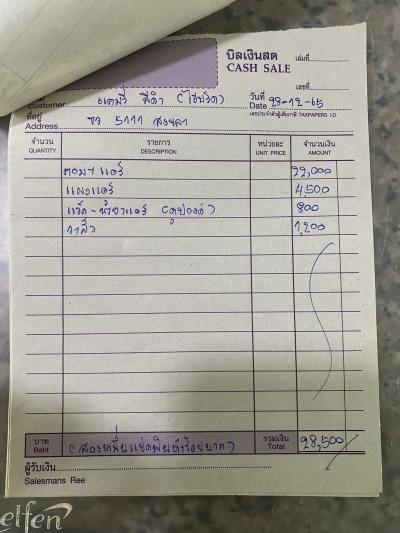 บิลเงินสด เล่มที่
CASH SALE
เลขที่
Customer แคมรี่ สีดำ (ไฮบริด) วันที่ Date 23-12-65
ที่อยู่ เลขประจำตัวผู้เสียภาษี TAXPAPERS I.D.
Address ทว 5777 สงขลา
จำนวน รายการ หน่วยละ จำนวนเงิน
QUANTITY DESCRIPTION UNIT PRICE AMOUNT
คอมฯ แอร์ 22,000
แผงแอร์ 4,500
แว็ค-น้ำยาแอร์ 800
วาล์ว 1,200
บาท รวมเงิน
Baht (สองหมื่นแปดพันห้าร้อยบาท) Total 28,500
ผู้รับเงิน
Salesmans Ree
elfen